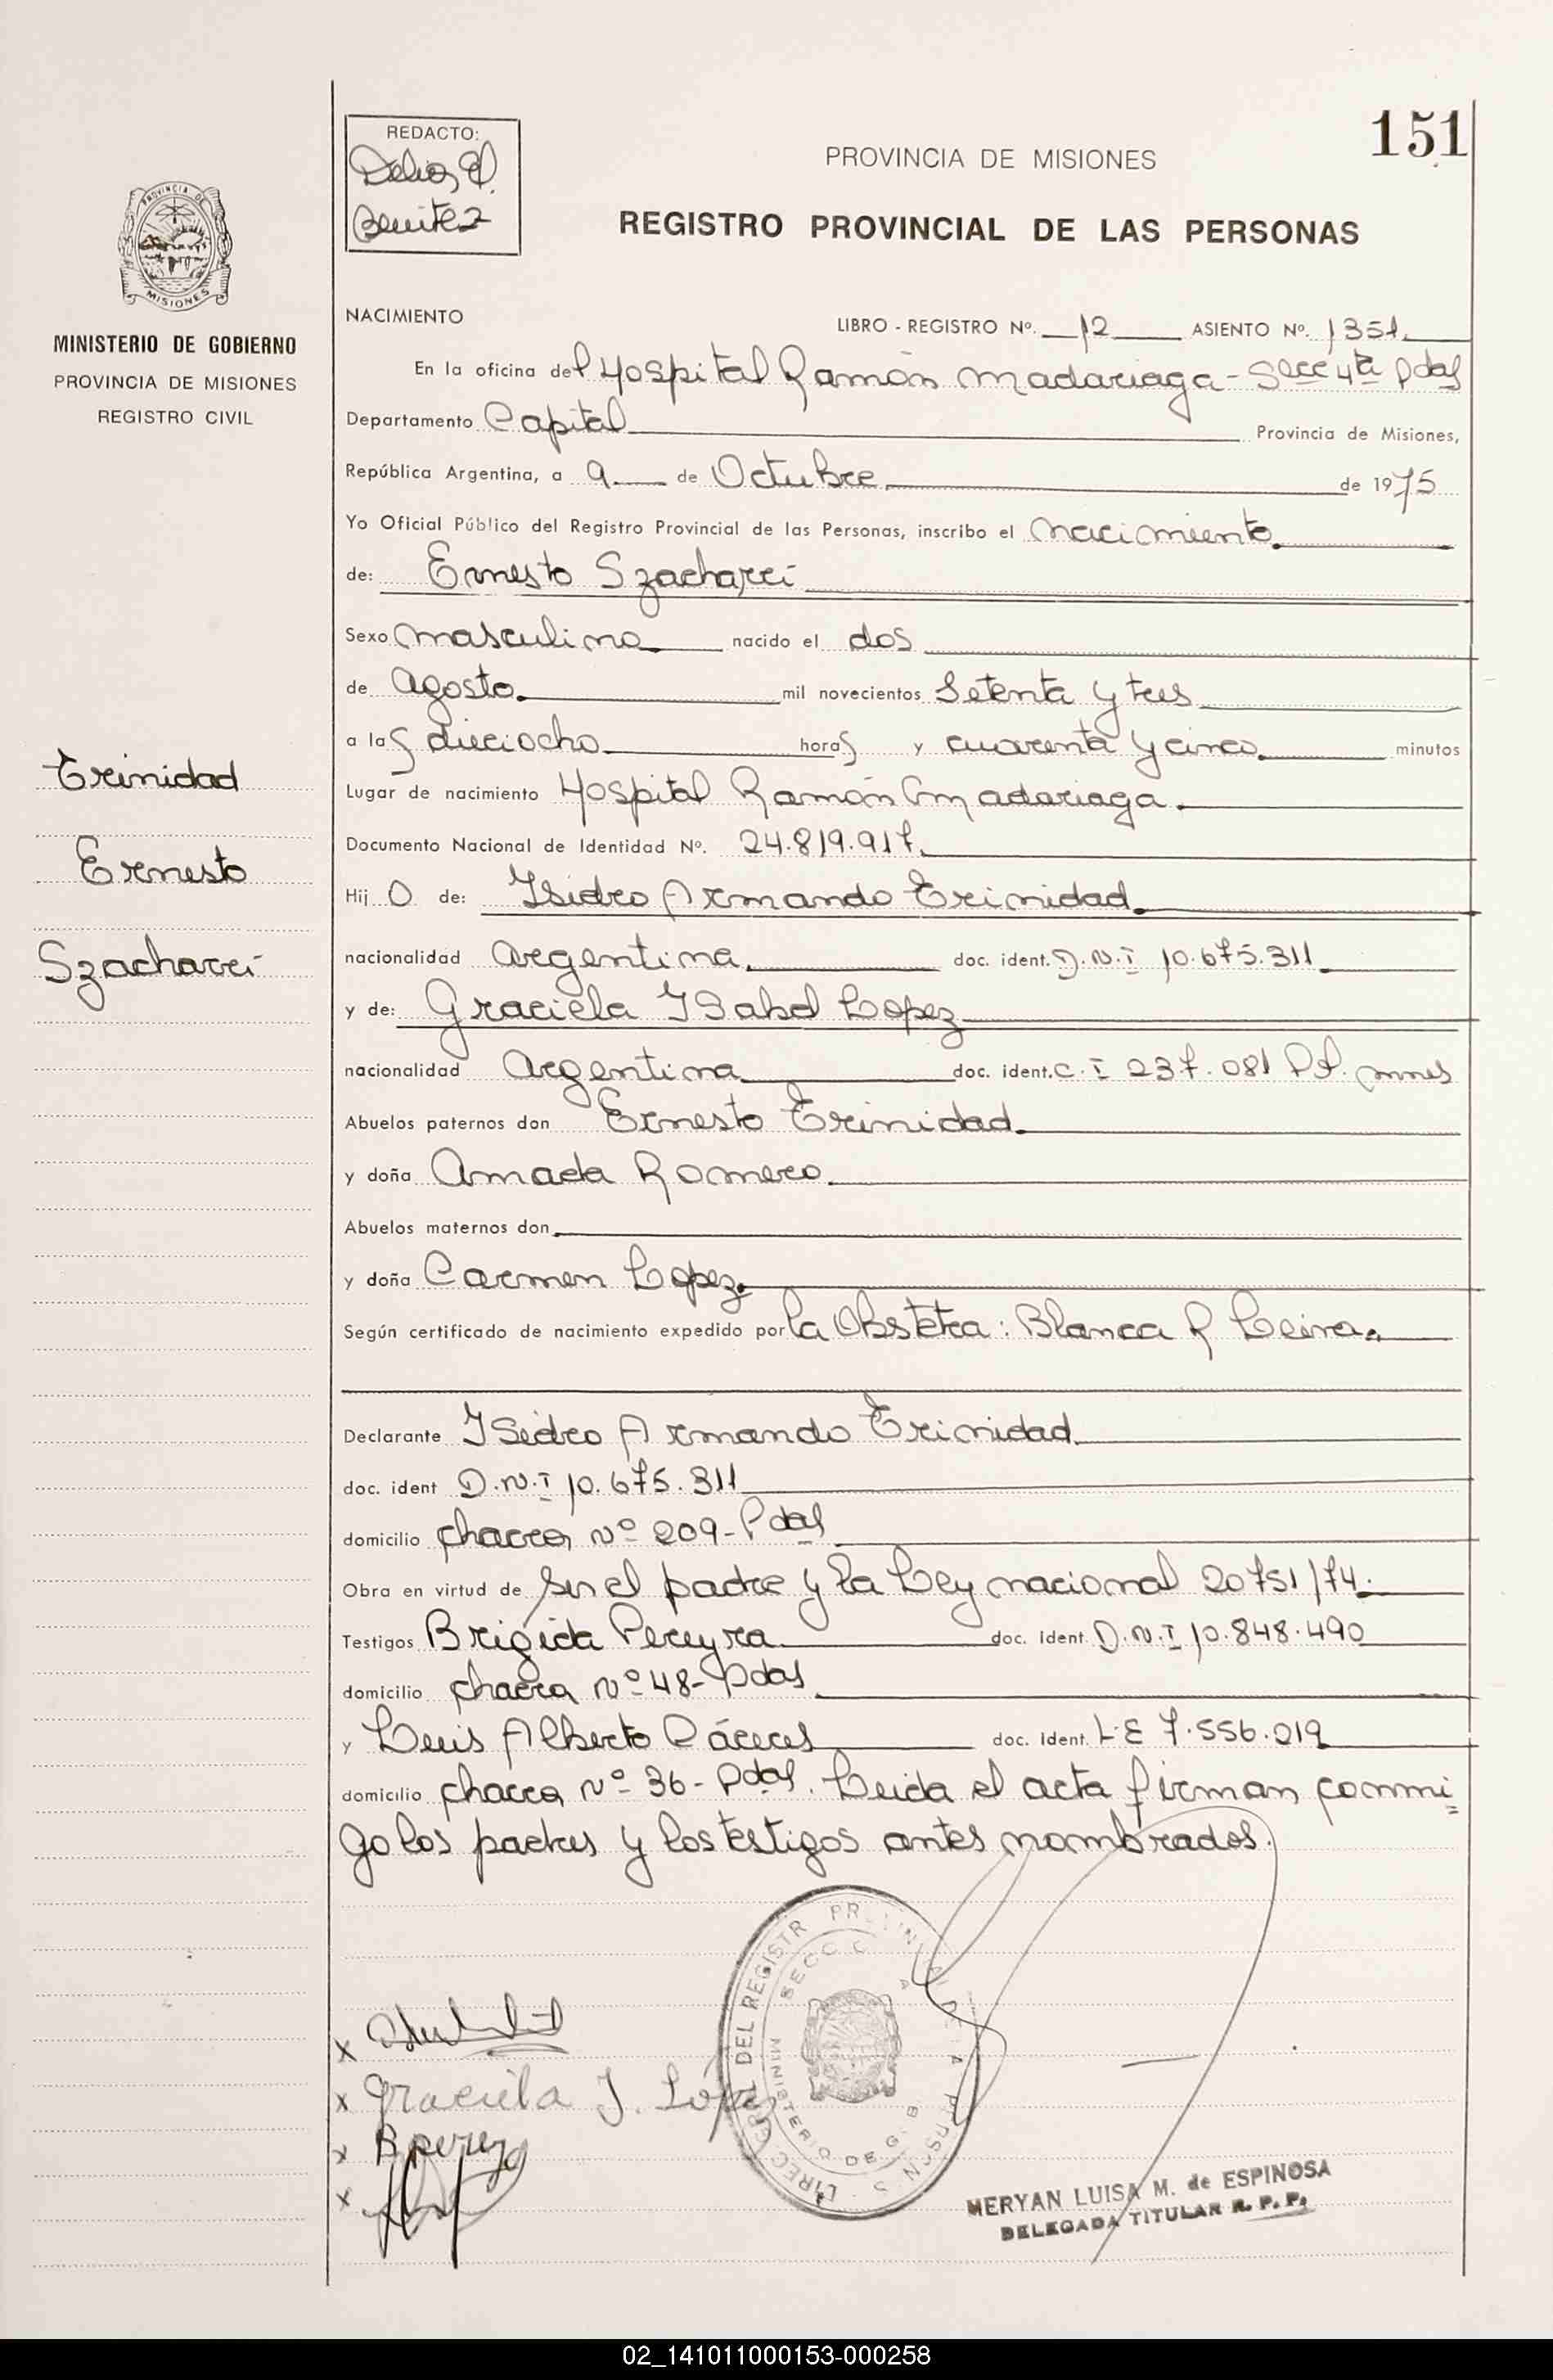 151
REDACTO:
Benitez
PROVINCIA DE MISIONES
REGISTRO PROVINCIAL DE LAS PERSONAS
PROVINCIA DE
MISIONES
MINISTERIO DE GOBIERNO
PROVINCIA DE MISIONES
REGISTRO CIVIL
Trinidad
Ernesto
Szacharri
NACIMIENTO
LIBRO - REGISTRO Nº. 12 ASIENTO Nº. 1351
En la oficina del Hospital Ramón Madariaga - Secc 4ta Pdas
Departamento Capital Provincia de Misiones,
República Argentina, a 9 de Octubre de 1975
Yo Oficial Público del Registro Provincial de las Personas, inscribo el nacimiento
de: Ernesto Szacharri
Sexo masculino nacido el dos
de agosto mil novecientos Setenta y tres
a las dieciocho horas y cuarenta y cinco minutos
Lugar de nacimiento Hospital Ramón Madariaga
Documento Nacional de Identidad Nº. 24.819.917
Hijo de: Isidro Armando Trinidad
nacionalidad argentina doc. ident. D.N.I 10.675.311
y de: Graciela Isabel Lopez
nacionalidad Argentina doc. ident. C.I 237.081 Pol. mnes
Abuelos paternos don Ernesto Trinidad
y doña Amada Romero
Abuelos maternos don
y doña Carmen Lopez
Según certificado de nacimiento expedido por la Obstetra: Blanca R Leiva
Declarante Isidro Armando Trinidad
doc. ident D.N.I 10.675.311
domicilio chacra Nº 209 - Pdas
Obra en virtud de ser el padre y la Ley nacional 20751/74.
Testigos Brigida Pereyra doc. ident D.N.I 10.848.490
domicilio chacra Nº 48 - Pdas
y Luis Alberto Cáceres doc. Ident. L.E 7.556.019
domicilio chacra Nº 36 - Pdas. Leida el acta firman conmi=
go los padres y los testigos antes nombrados.
x
x Graciela I. López
x
x
MERYAN LUISA M. de ESPINOSA
DELEGADA TITULAR R. P. P.
02_141011000153-000258